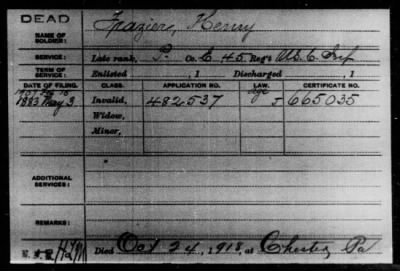 DEAD
NAME OF SOLDIER: Frazier, Henry
SERVICE: Late rank, P. Co. E 45 Reg't U.S.C. Inf
TERM OF SERVICE: Enlisted , 1 Discharged , 1
DATE OF FILING. CLASS. APPLICATION NO. LAW. CERTIFICATE NO.
1883 May 3 Invalid, 482537 J 665035
Widow,
Minor,
ADDITIONAL SERVICES:
REMARKS:
Died Oct 24, 1918, at Chester, Pa